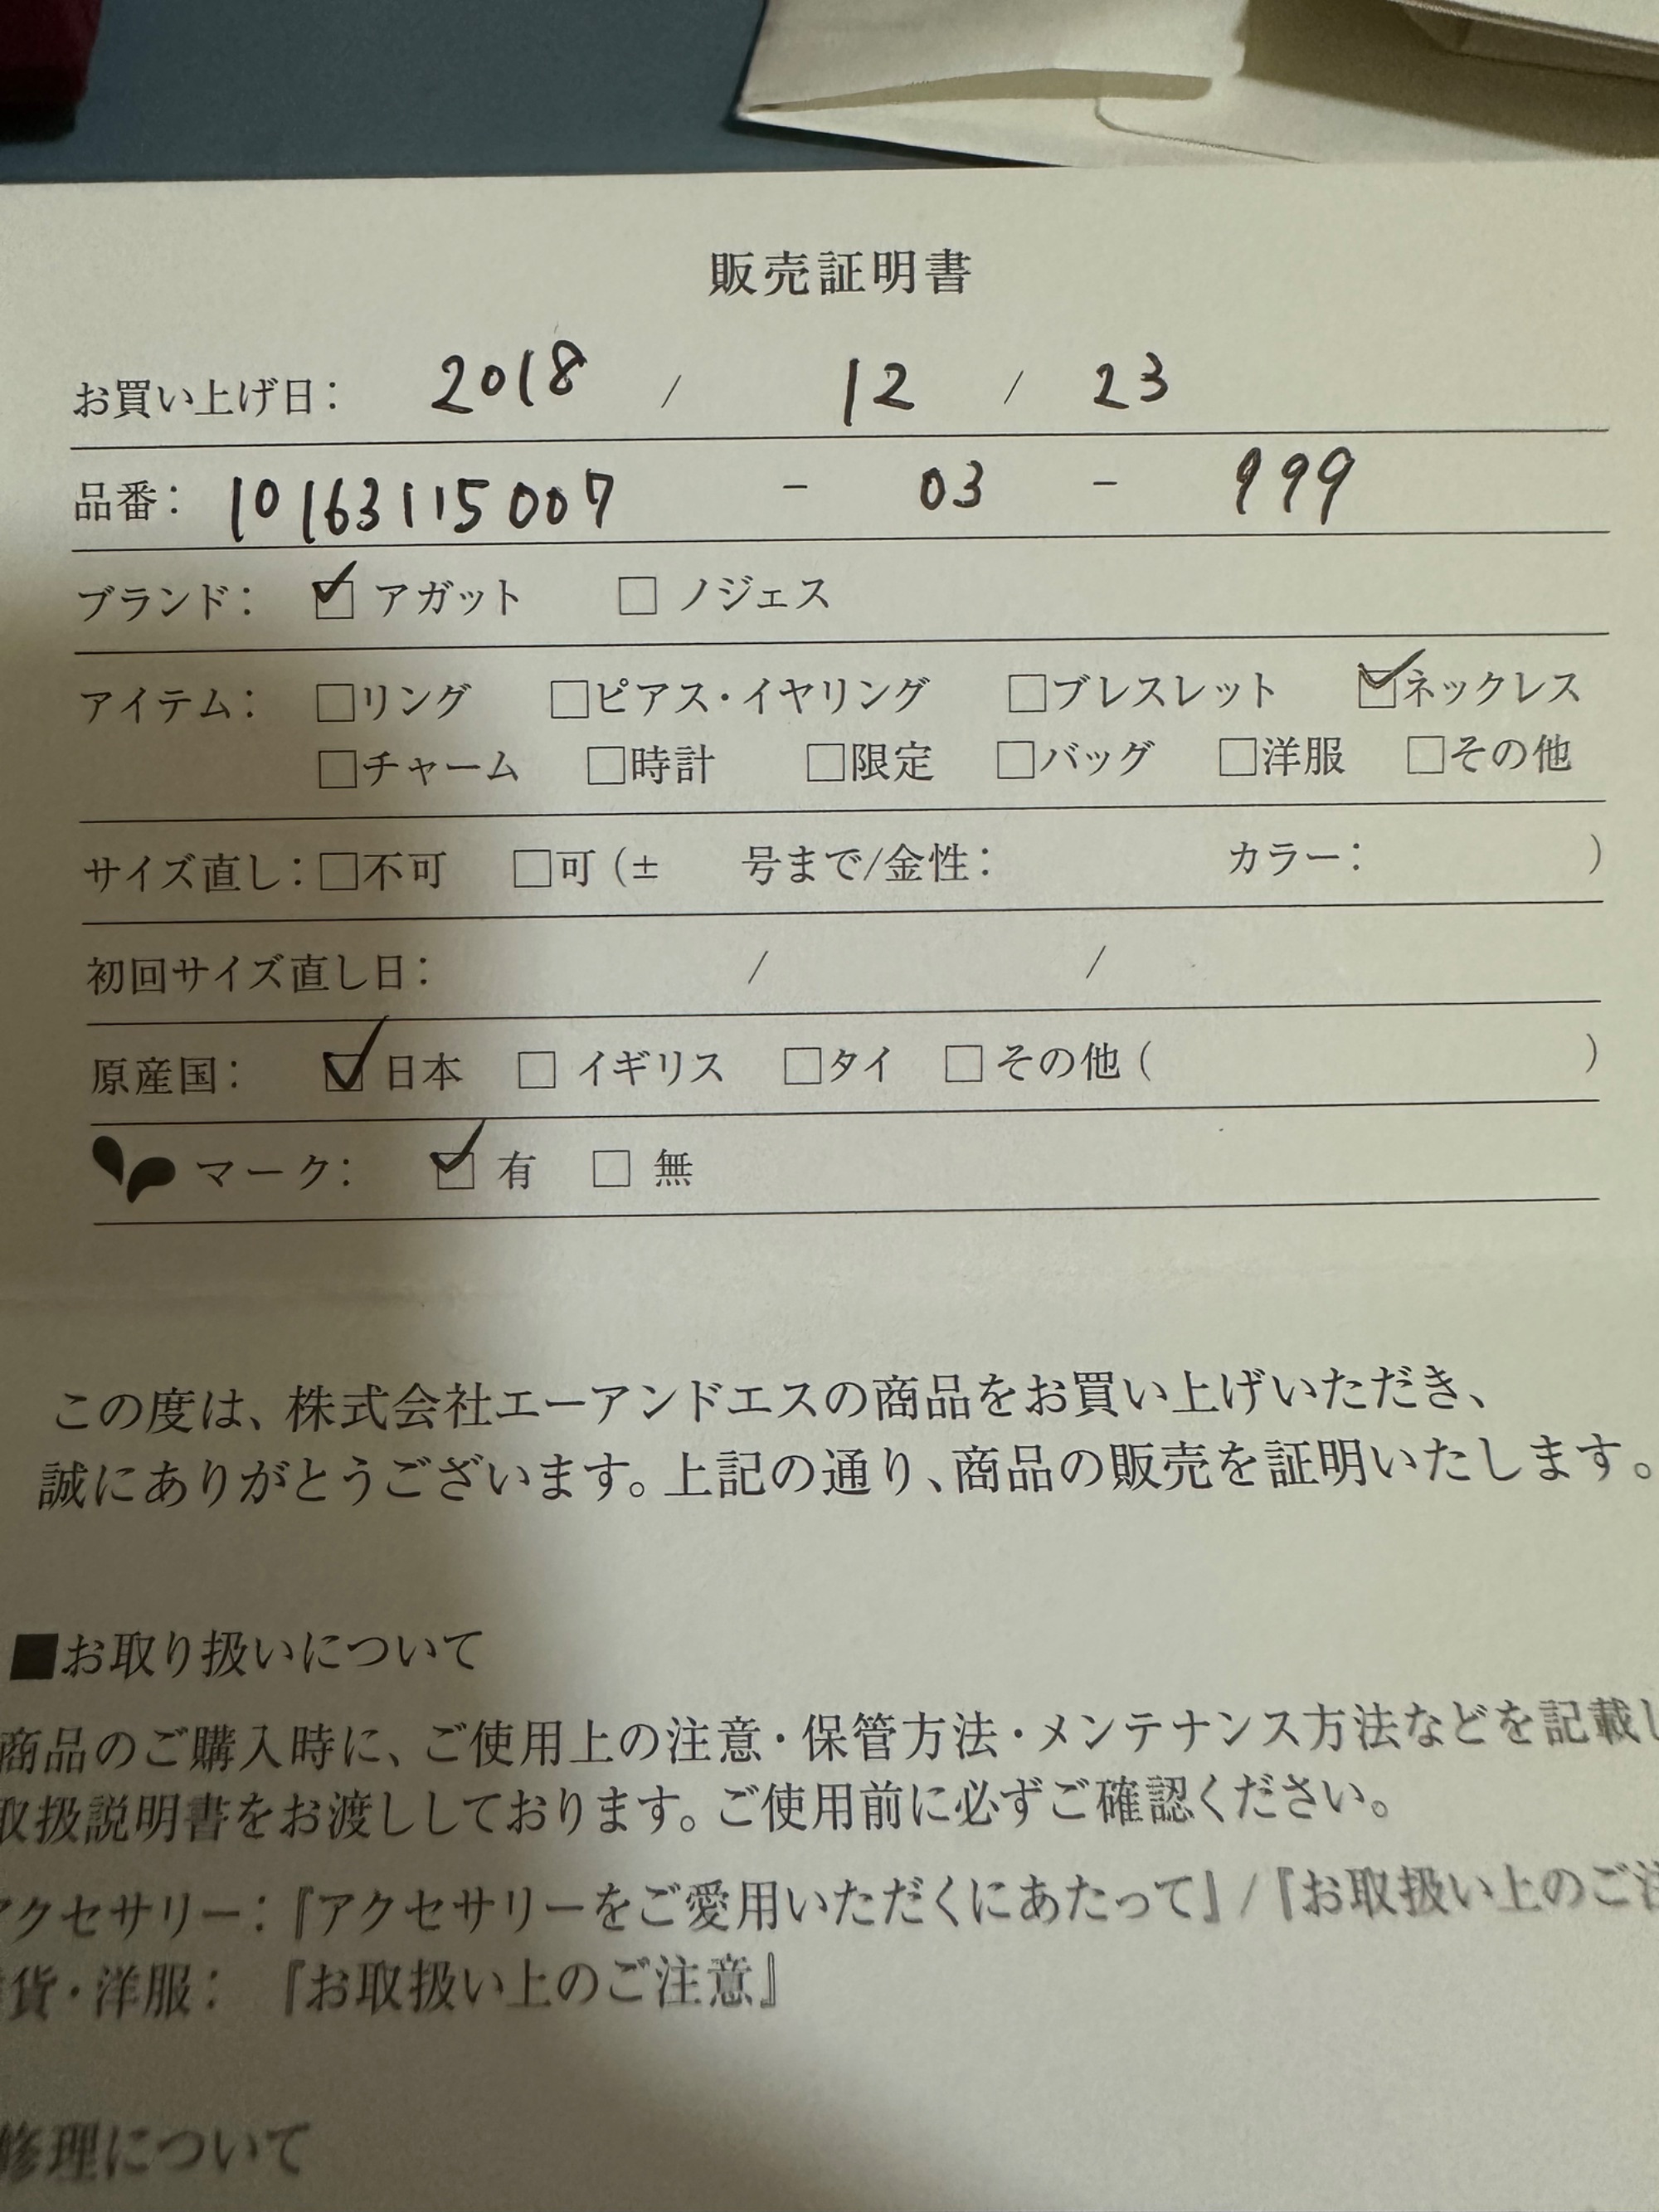 販売証明書
お買い上げ日： 2018 / 12 / 23
品番： 10163115007 - 03 - 999
ブランド： ☑ アガット □ ノジェス
アイテム： □リング □ピアス・イヤリング □ブレスレット ☑ネックレス
□チャーム □時計 □限定 □バッグ □洋服 □その他
サイズ直し：□不可 □可（± 号まで/金性： カラー： ）
初回サイズ直し日： / /
原産国： ☑ 日本 □ イギリス □タイ □ その他（ ）
マーク： ☑ 有 □ 無
この度は、株式会社エーアンドエスの商品をお買い上げいただき、
誠にありがとうございます。上記の通り、商品の販売を証明いたします。
■お取り扱いについて
商品のご購入時に、ご使用上の注意・保管方法・メンテナンス方法などを記載し
取扱説明書をお渡ししております。ご使用前に必ずご確認ください。
アクセサリー：『アクセサリーをご愛用いただくにあたって』/『お取扱い上のご注
貨・洋服： 『お取扱い上のご注意』
修理について